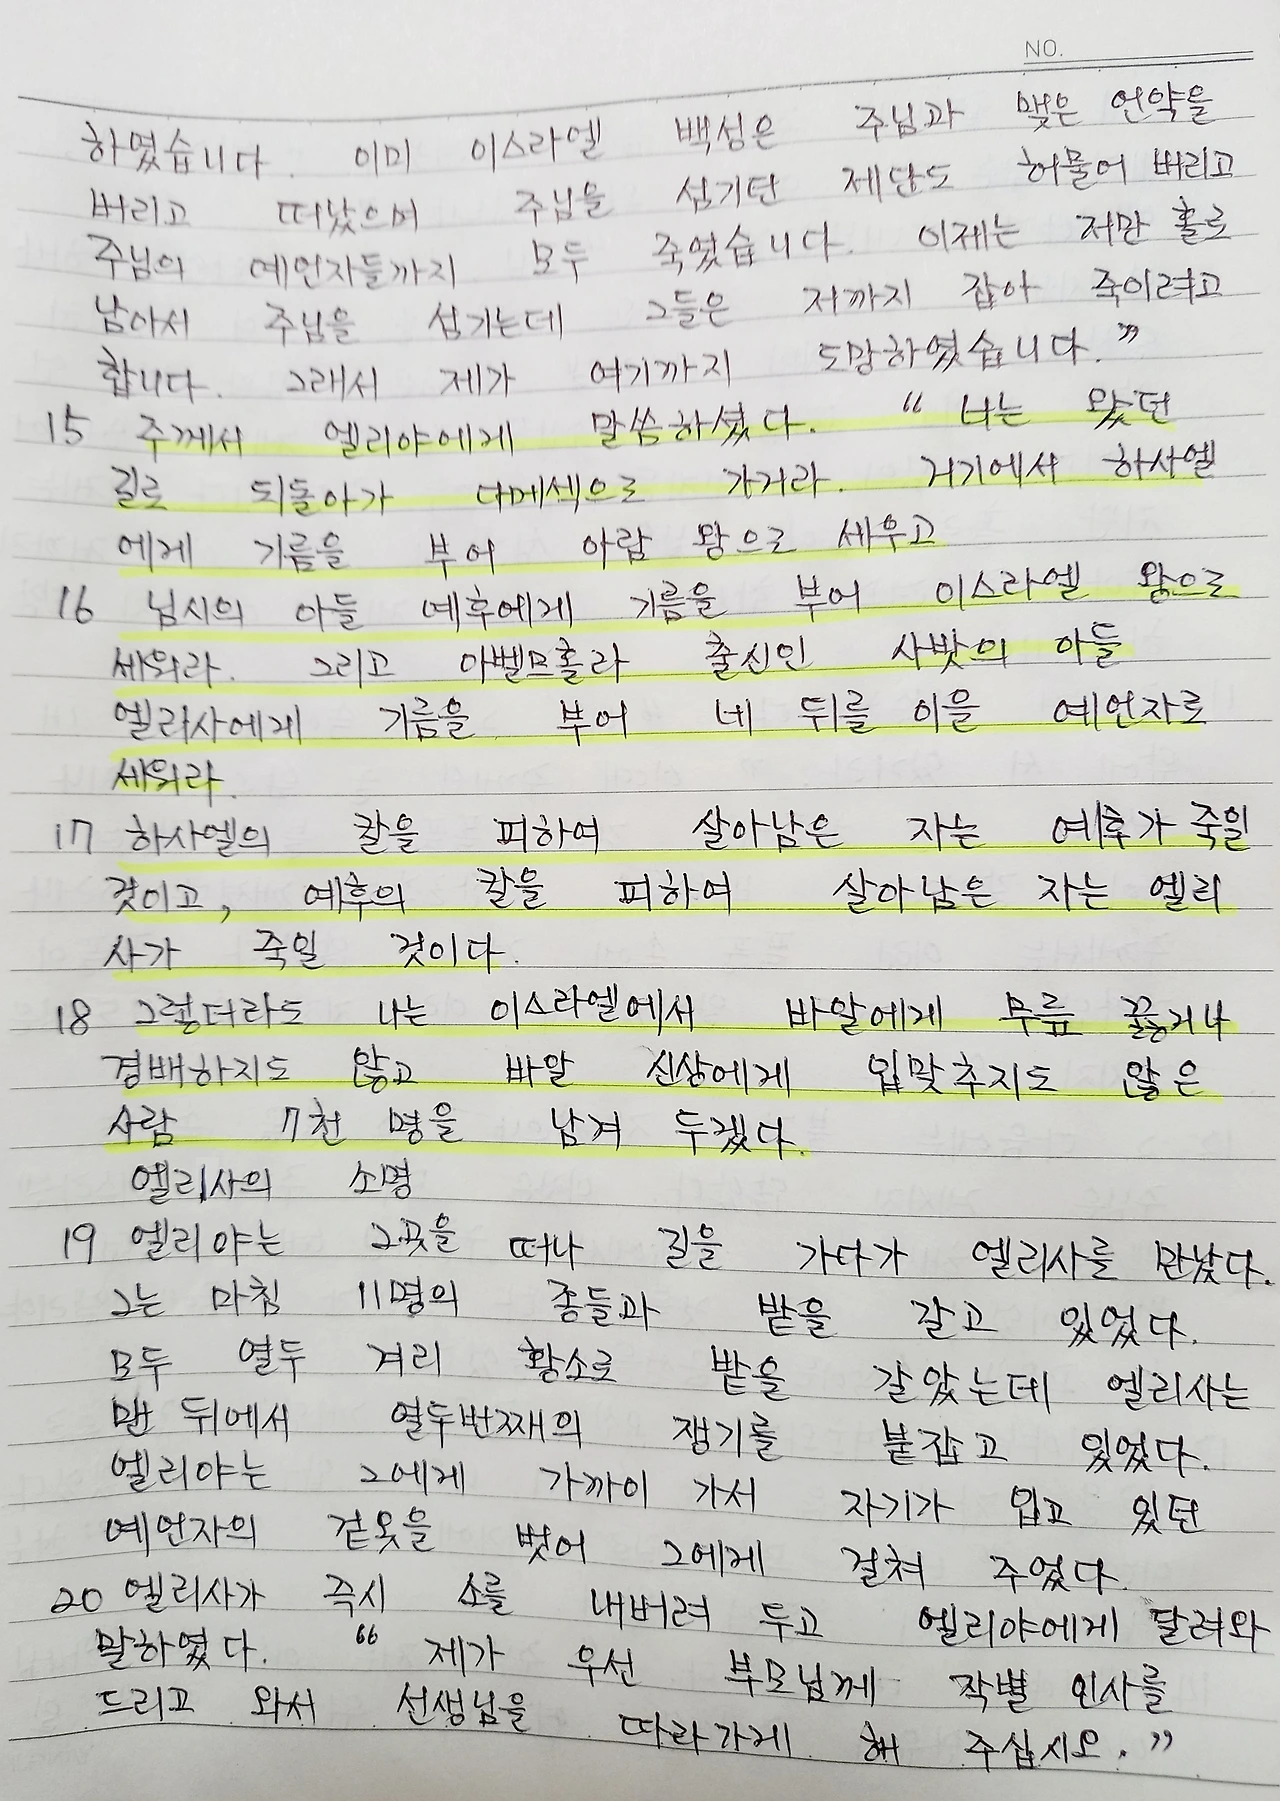 NO.
하였습니다. 이미 이스라엘 백성은 주님과 맺은 언약을
버리고 떠났으며 주님을 섬기던 제단도 허물어 버리고
주님의 예언자들까지 모두 죽였습니다. 이제는 저만 홀로
남아서 주님을 섬기는데 그들은 저까지 잡아 죽이려고
합니다. 그래서 제가 여기까지 도망하였습니다.”
15 주께서 엘리야에게 말씀하셨다. “너는 왔던
길로 되돌아가 다메섹으로 가거라. 거기에서 하사엘
에게 기름을 부어 아람 왕으로 세우고
16 님시의 아들 예후에게 기름을 부어 이스라엘 왕으로
세워라. 그리고 아벨므홀라 출신인 사밧의 아들
엘리사에게 기름을 부어 네 뒤를 이을 예언자로
세워라.
17 하사엘의 칼을 피하여 살아남은 자는 예후가 죽일
것이고, 예후의 칼을 피하여 살아남은 자는 엘리
사가 죽일 것이다.
18 그렇더라도 나는 이스라엘에서 바알에게 무릎 꿇거나
경배하지도 않고 바알 신상에게 입맞추지도 않은
사람 7천 명을 남겨 두겠다.
엘리사의 소명
19 엘리야는 그곳을 떠나 길을 가다가 엘리사를 만났다.
그는 마침 11명의 종들과 밭을 갈고 있었다.
모두 열두 겨리 황소로 밭을 갈았는데 엘리사는
맨 뒤에서 열두번째의 쟁기를 붙잡고 있었다.
엘리야는 그에게 가까이 가서 자기가 입고 있던
예언자의 겉옷을 벗어 그에게 걸쳐 주었다.
20 엘리사가 즉시 소를 내버려 두고 엘리야에게 달려와
말하였다. “제가 우선 부모님께 작별 인사를
드리고 와서 선생님을 따라가게 해 주십시오.”